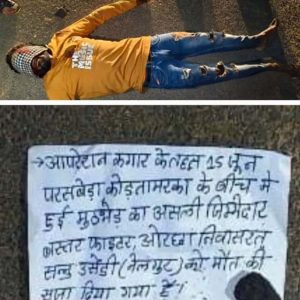 THE
ISSUE
→ आपरेशन कगार के तहत 15 जून
परसबेड़ा कोड़तामरका के बीच मे
हुई मुठभेड़ का असली जिम्मेदार
बस्तर फाइटर, ओरछा निवासरत
सन्नु उसेंडी (मेलमुट) को मौत की
सजा दिया गया है।